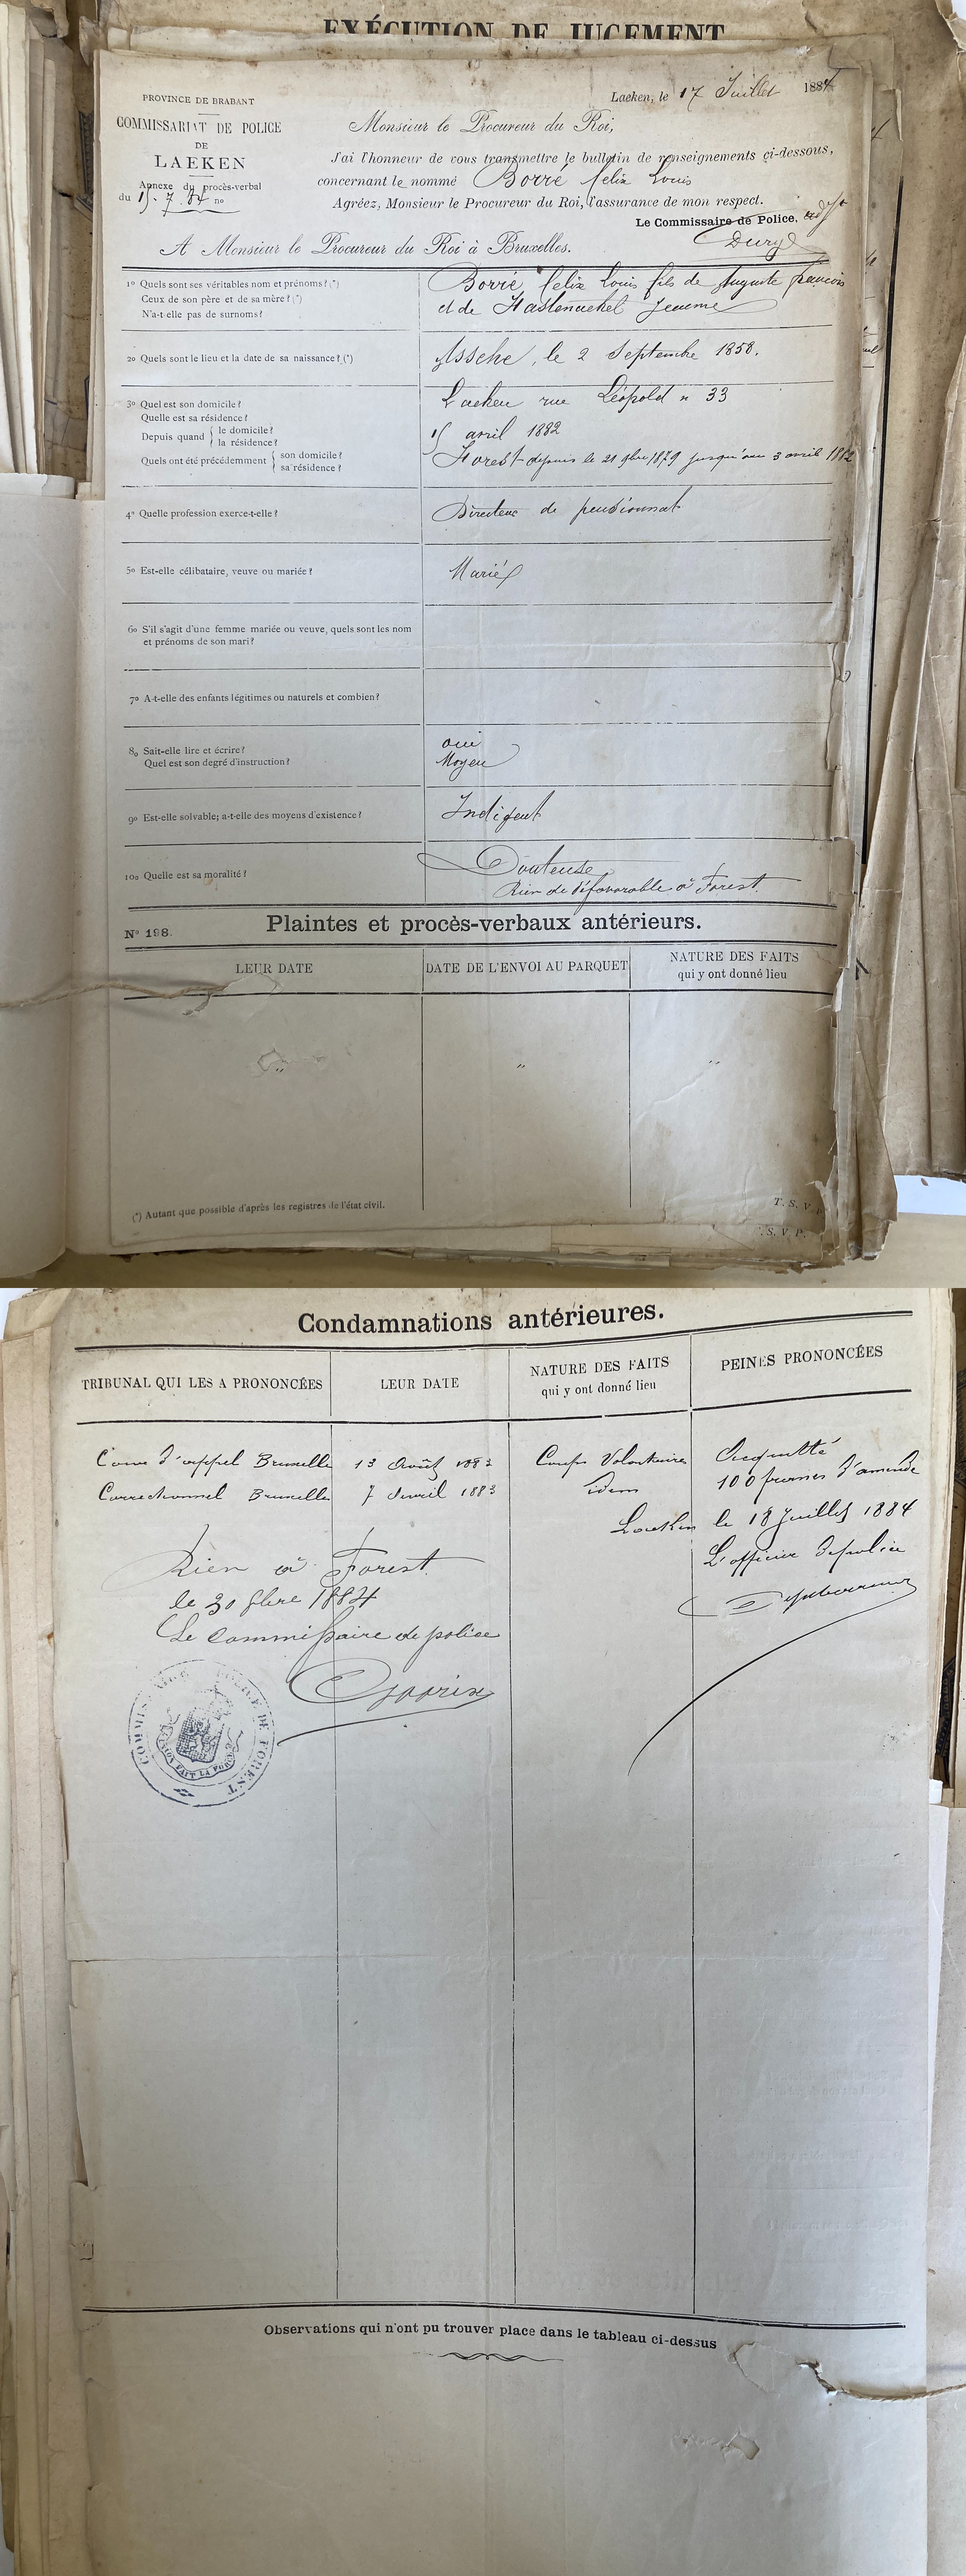 EXÉCUTION DE JUGEMENT
Laeken, le 17 Juillet 1884
PROVINCE DE BRABANT
COMMISSARIAT DE POLICE
DE
LAEKEN
Annexe du procès-verbal
du 15. 7. 84 no
Monsieur le Procureur du Roi,
J'ai l'honneur de vous transmettre le bulletin de renseignements ci-dessous,
concernant le nommé Borré felix Louis
Agréez, Monsieur le Procureur du Roi, l'assurance de mon respect.
Le Commissaire de Police,
A Monsieur le Procureur du Roi à Bruxelles.
1o Quels sont ses véritables nom et prénoms? (*)
Ceux de son père et de sa mère? (*)
N'a-t-elle pas de surnoms?
Borré felix Louis fils de Auguste francois
et de Jeanne
2o Quels sont le lieu et la date de sa naissance? (*)
Assche, le 2 Septembre 1858.
3o Quel est son domicile?
Quelle est sa résidence?
Depuis quand { le domicile?
la résidence?
Quels ont été précédemment { son domicile?
sa résidence?
Laeken rue Léopold n 33
15 avril 1882
Forest depuis le 21 9bre 1879 jusqu'au 3 avril 1882
4o Quelle profession exerce-t-elle?
Directeur de pensionnat
5o Est-elle célibataire, veuve ou mariée?
Marié
6o S'il s'agit d'une femme mariée ou veuve, quels sont les nom
et prénoms de son mari?
7o A-t-elle des enfants légitimes ou naturels et combien?
8o Sait-elle lire et écrire?
Quel est son degré d'instruction?
oui
Moyen
9o Est-elle solvable; a-t-elle des moyens d'existence?
Indigent
10o Quelle est sa moralité?
Douteuse
Rien de défavorable à Forest
No 198.
Plaintes et procès-verbaux antérieurs.
LEUR DATE
DATE DE L'ENVOI AU PARQUET
NATURE DES FAITS
qui y ont donné lieu
" " "
(*) Autant que possible d'après les registres de l'état civil.
T. S. V. P.
T. S. V. P.
Condamnations antérieures.
TRIBUNAL QUI LES A PRONONCÉES
LEUR DATE
NATURE DES FAITS
qui y ont donné lieu
PEINES PRONONCÉES
Cour d'appel Bruxelles 13 Août 1883 Coups Volontaires Acquitté
Correctionnel Bruxelles 7 Avril 1883 Idem 100 francs d'amende
Laeken le 18 Juillet 1884
L'officier de police
Rien à Forest
le 30 9bre 1884
Le Commissaire de police
COMMISSAIRE DE POLICE DE FOREST
L'UNION FAIT LA FORCE
Observations qui n'ont pu trouver place dans le tableau ci-dessus